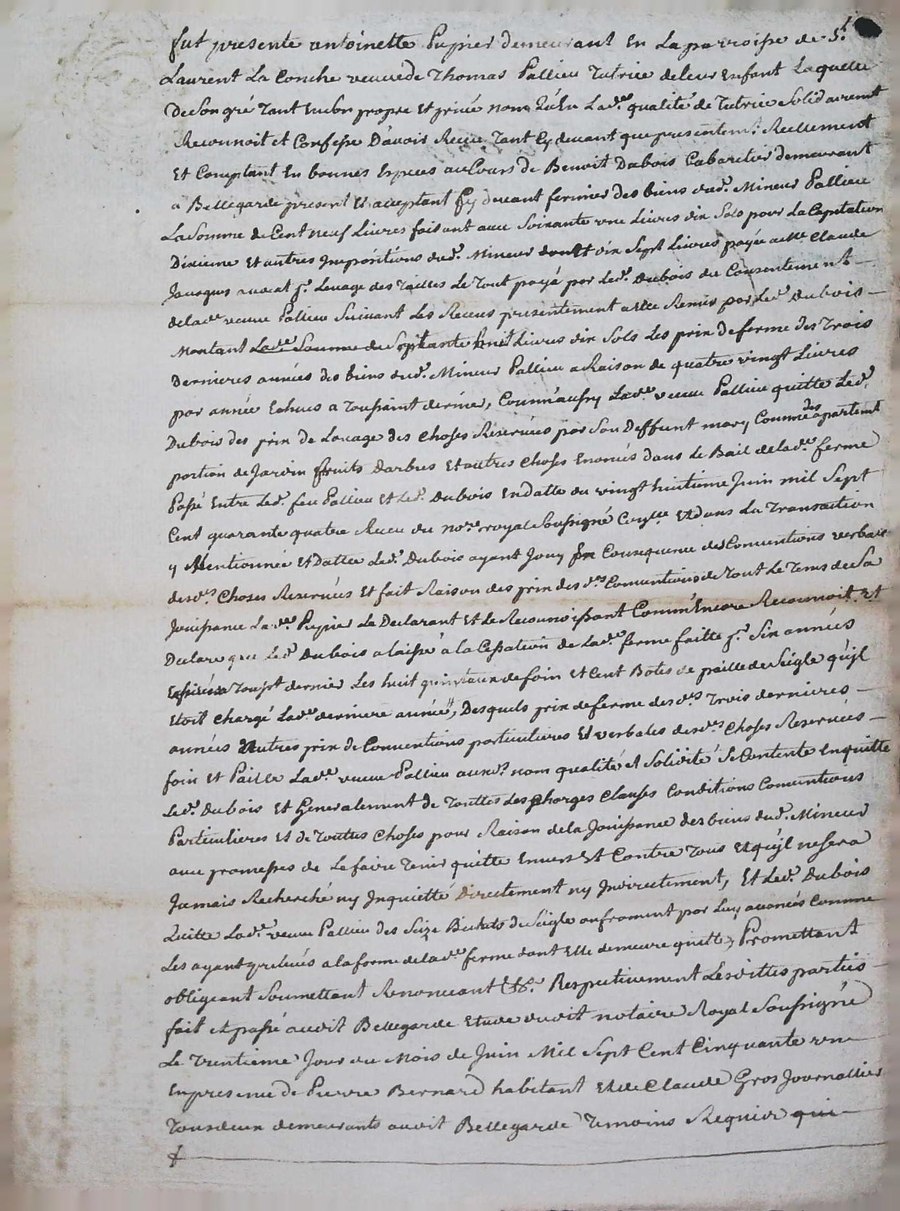 fut presente antoinette Pupier demeurant En La parroisse de St
Laurent La Conche veuve de Thomas Pallieu Tutrice de leur Enfant Laquelle
De Son gré Tant En Son propre Et privé nom Qu'En Lade qualité de Tutrice Solidairement
Reconnoit et Confesse D'avoir Reçeu Tant Cy devant que presentemt Reellement
Et Comptant En bonnes Especes au Cours de Benoit Dubois Cabaretier demeurant
a Bellegarde present Et acceptant Cy devant fermier des biens dud. Mineur Pallieu
La Somme de Cent neuf Livres faisant avec Soixante une Livres dix Sols pour La Capitation
Dixieme Et autres Impositions dud. Mineur dix Sept Livres payée a Me Claude
Jacques avocat pr Louage des Tailles Le Tout payé par Led. Dubois du Consentement
de lade veuve Pallieu Suivant Les Receus presentement a Elle Remis par Led. Dubois
Montant Lade Somme de Septante huit Livres dix Sols Les prix de ferme des Trois
Dernieres années des biens dud. Mineur Pallieu a Raison de quatre vingt Livres
par année Echues a Toussaint dernier, Comm'aussy Lade veuve Pallieu quitte Led.
Dubois des prix de Louage des Choses Reservées par Son Deffunt mary Comme des apartement
portion de Jardin fruits D'arbres Et autres Choses Enoncés dans Le Bail de lade ferme
Passé Entre Led. feu Pallieu Et Led. Dubois En datte du vingt huitieme Juin mil Sept
Cent quarante quatre Receu du nore royal Soussigné Et dans La Transaction
y Mentionnée Et Dattée Led. Dubois ayant Jouy En Consequence des Conventions verbales
desdes Choses Reservées Et fait Raison des prix desdes Conventions de Tout Le Tems de Sa
Jouissance Lade Pupier Le Declarant Et Le Reconnoissant Comm'Encore Reconnoit Et
Declare que Led. Dubois a laissé à la Cessation de Lade ferme faitte pr Six années
Expirées a Touss't dernier Les huit quintaux de foin Et Cent Botes de paille de Seigle qu'il
Etoit Chargé Lade derniere année, Desquels prix de ferme desdes Trois dernieres
années autres prix de Conventions particulieres Et verbales desdes Choses Reservées
foin Et Paille Lade veuve Pallieu auxds nom qualité Et Solidité Se Contente En quitte
Led. Dubois Et Generalement de Touttes Les Charges Clauses Conditions Conventions
Particulieres Et de Touttes Choses pour Raison de la Jouissance des biens dud. Mineur
avec promesses de Le faire Tenir quitte Envers Et Contre Tous Et qu'il ne Sera
Jamais Recherché ny Inquietté Directement ny Indirectement, Et Led. Dubois
Quitte Lade veuve Pallieu des Seize Bichets de Seigle ou froment par Luy avancés Comme
Les ayant prelevés a la forme de lade ferme dont Elle demeure quitte, Promettant
obligeant Soumettant Renonceant &c. Respectivement Lesdittes parties
fait Et passé audit Bellegarde Etude dudit notaire Royal Soussigné
Le Trentieme Jour du Mois de Juin Mil Sept Cent Cinquante un
En presence de Pierre Bernard habitant Et de Claude Gros Journallier
Tous deux demeurants audit Bellegarde Temoins Requier qui